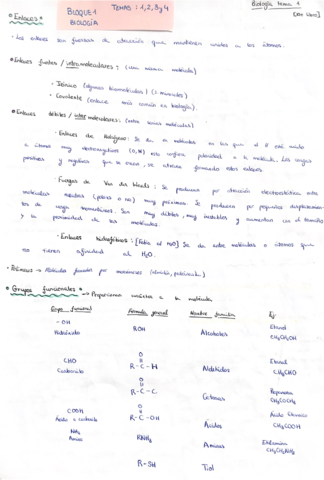 BLOQUE 1 TEMAS: 1, 2, 3 y 4
BIOLOGÍA
Biología tema 1
• Enlaces •
· Los enlaces son fuerzas de atracción que mantienen unidos a los átomos.
• Enlaces fuertes / intramoleculares: (una misma molécula)
· Iónico (algunas biomoléculas) ( )
· Covalente (enlace más común en biología).
• Enlaces débiles / intermoleculares: (entre varias moléculas)
· Enlaces de Hidrógeno: Se da en moléculas en las que el H está unido
a átomos muy electronegativos (O, N) esto origina polaridad a la molécula. Las cargas
positivas y negativas que se crean, se atraen formando estos enlaces.
· Fuerzas de Van der Waals: Se producen por atracción electrostática entre
moléculas neutras (polares o no) muy próximas. Se producen por pequeños desplazamien-
tos de carga transitorios. Son muy débiles, muy inestables y aumentan con el tamaño
y la proximidad de las moléculas.
· Enlaces hidrofóbicos: [Fobia al H2O] Se da entre moléculas o átomos que
no tienen afinidad al H2O.
• Polímeros → Moléculas formadas por monómeros (almidón, )
• Grupos funcionales • → Proporcionan carácter a la molécula
Grupo funcional Fórmula general Nombre familia Ej:
- OH ROH Alcoholes Etanol
Hidroxilo CH3CH2OH
CHO O Aldehídos Etanal
Carbonilo R - C - H CH3CHO
O
R - C - C Cetonas Propanona
CH3COCH3
COOH O Ácidos Ácido
Ácido o carboxilo R - C - OH CH3COOH
NH2 RNH2 Aminas Etilamina
Amino CH3CH2NH2
R - SH Tiol